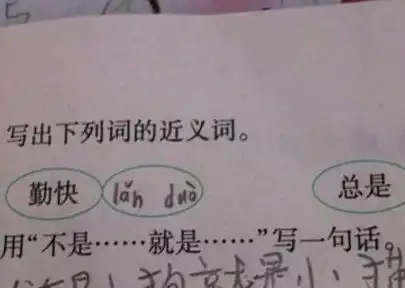 写出下列词的近义词。
勤快 lǎn duò 总是
用“不是……就是……”写一句话。
就是小